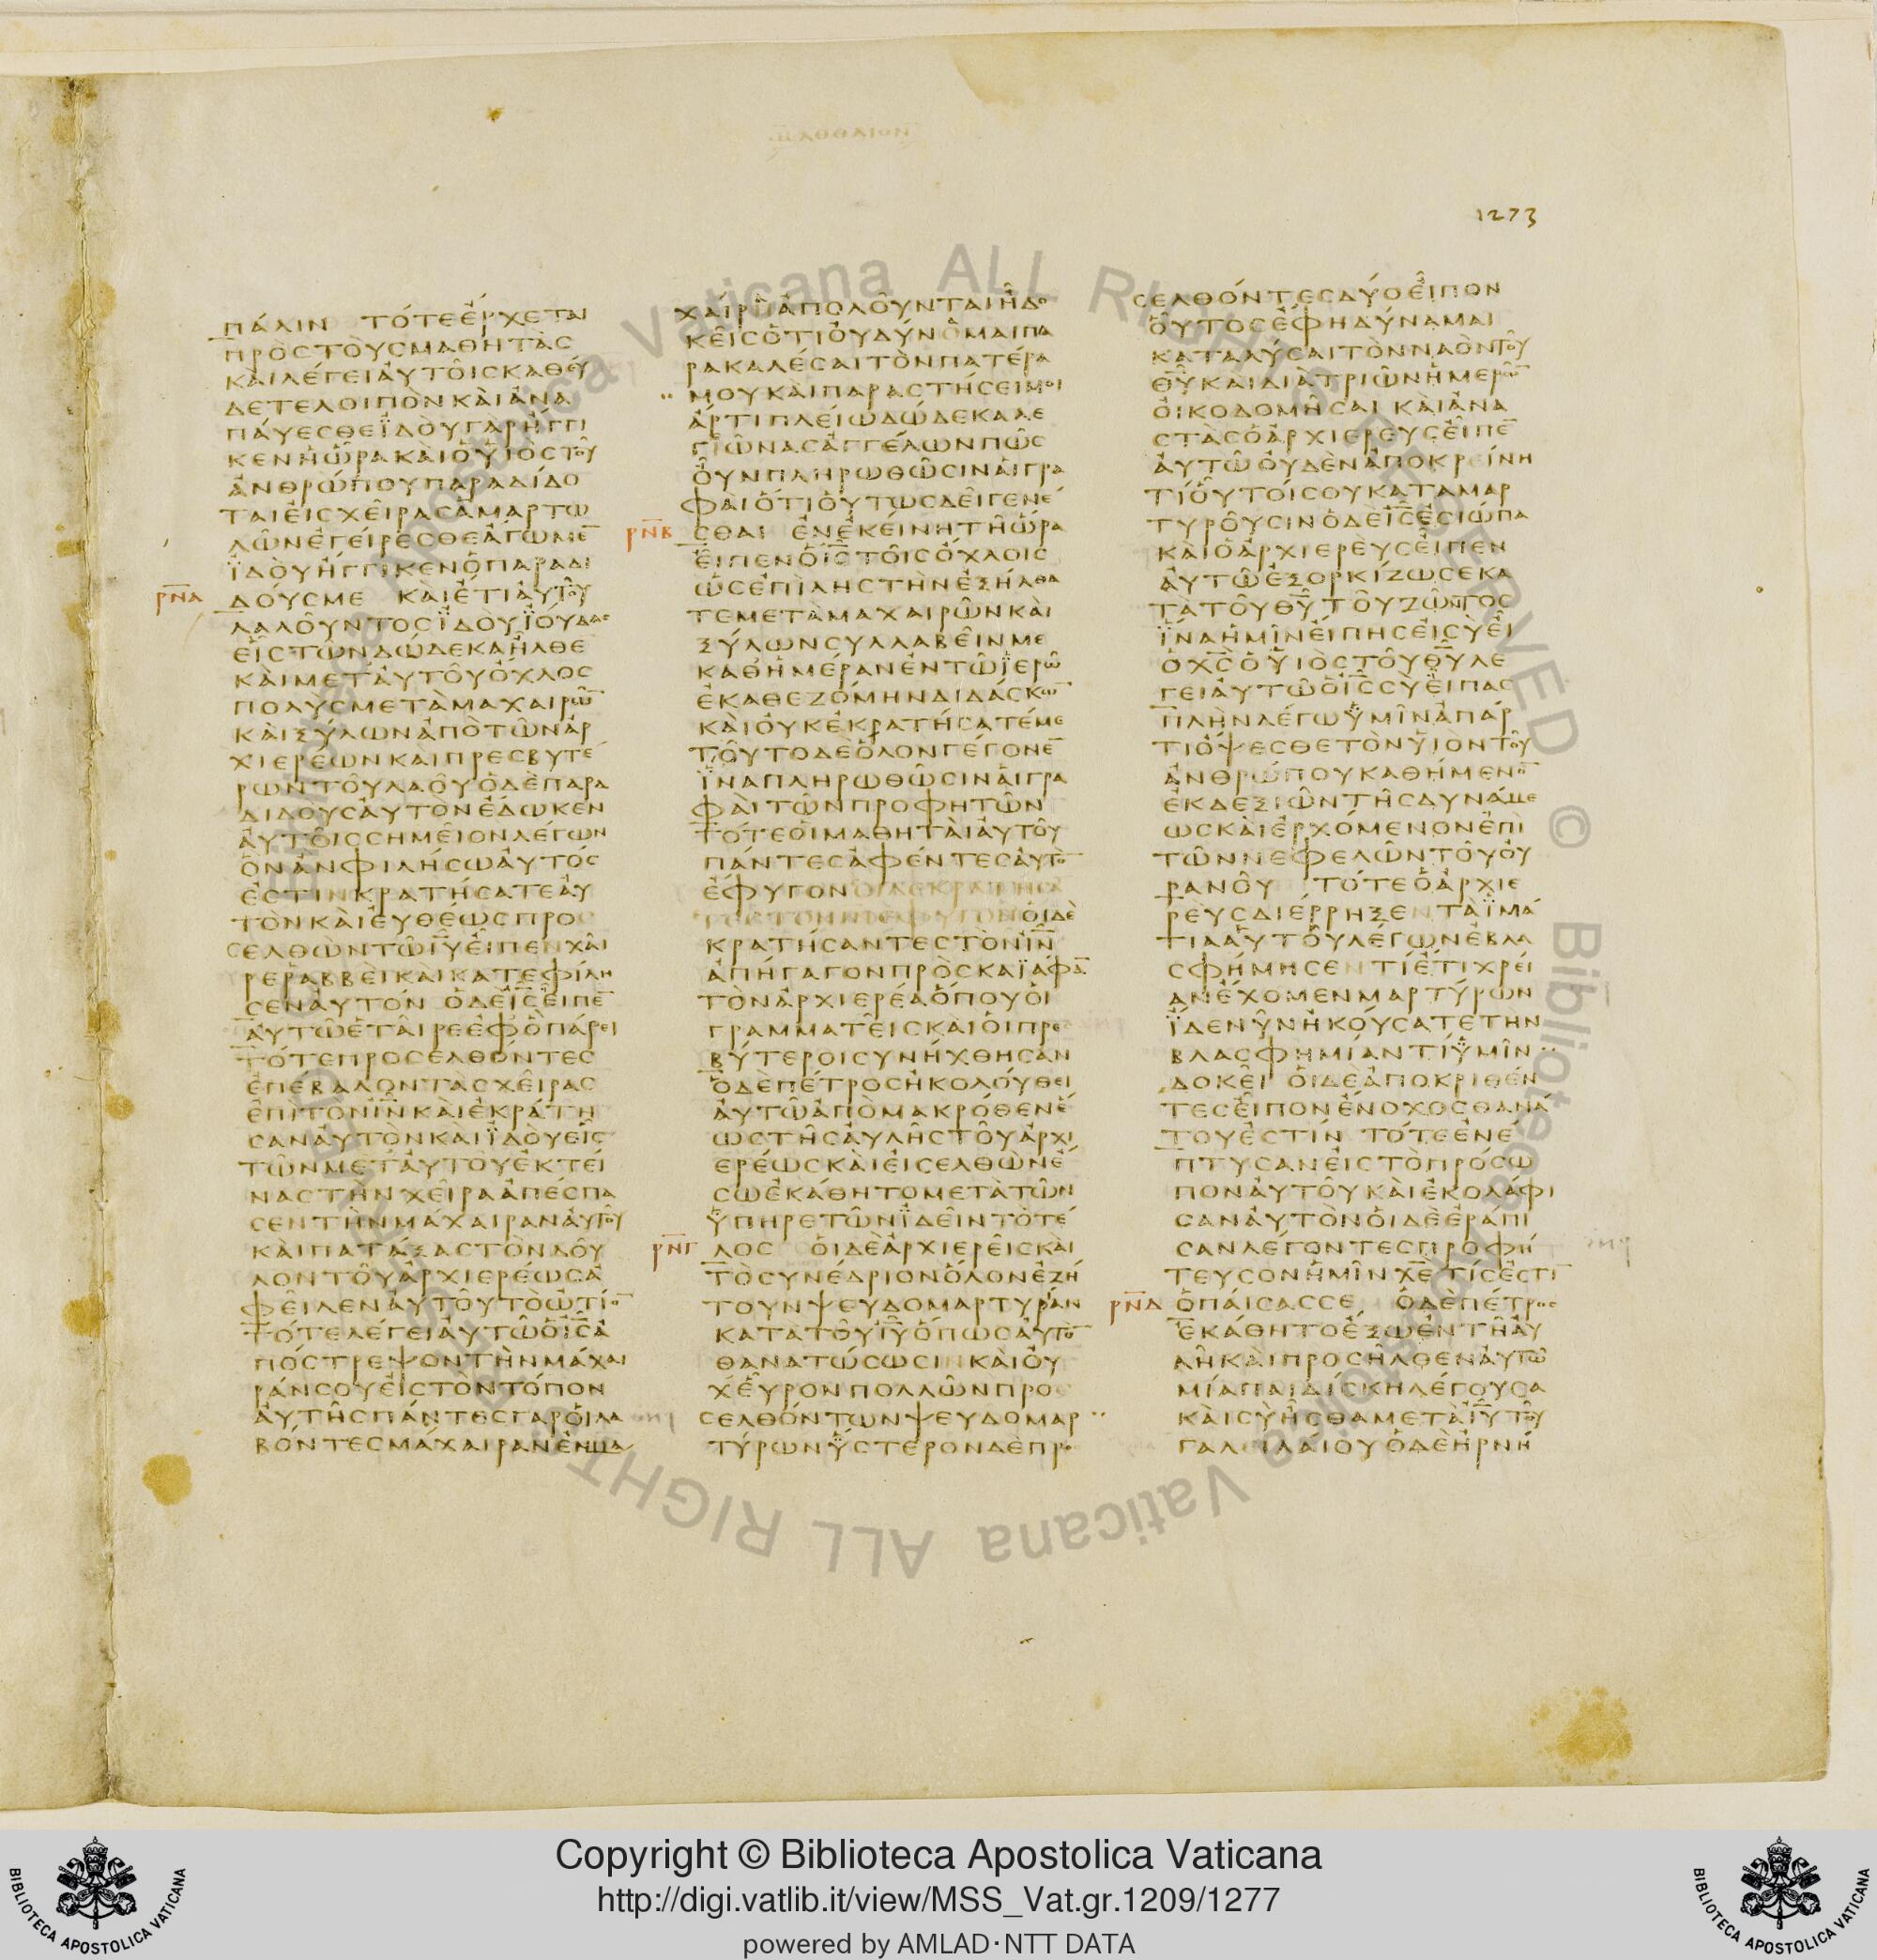 ΜΑΘΘΑΙΟΝ
1273
ΠΆΛΙΝ ΤΌΤΕἜΡΧΕΤΑΙ
ΠΡῸΣΤΟῪΣΜΑΘΗΤᾺΣ
ΚΑῚΛΈΓΕΙΑΥ̓ΤΟΙ͂ΣΚΑΘΕΎ
ΔΕΤΕΛΟΙΠῸΝΚΑῚἈΝΑ
ΠΆΥΕΣΘΕΪΔΟῪΓᾺΡἬΓΓΙ
ΚΕΝἩὭΡΑΚΑῚὉΥἹῸΣΤΟΥ͂
ἈΝΘΡΏΠΟΥΠΑΡΑΔΊΔΟ
ΤΑΙΕἸΣΧΕΙ͂ΡΑΣἉΜΑΡΤΩ
ΛΩ͂ΝἘΓΕΊΡΕΣΘΕἌΓΩΜΕ̅
ΪΔΟῪἬΓΓΙΚΕΝὉΠΑΡΑΔΙ
ΡΝ̅Α ΔΟΎΣΜΕ ΚΑῚἜΤΙΑΥ̓ΤΟΥ͂
ΛΑΛΟΥ͂ΝΤΟΣΪΔΟῪΪΟΎΔΑΣ
ΕἿΣΤΩ͂ΝΔΏΔΕΚΑἮΛΘΕ
ΚΑῚΜΕΤΑΥ̓ΤΟΥ͂ὌΧΛΟΣ
ΠΟΛῪΣΜΕΤᾺΜΑΧΑΙΡΩ̅
ΚΑῚΞΎΛΩΝἈΠῸΤΩ͂ΝἈΡ
ΧΙΕΡΈΩΝΚΑΙΠΡΕΣΒΥΤΕ
ΡΩΝΤΟΥ͂ΛΑΟΥ͂ὉΔῈΠΑΡΑ
ΔΙΔΟῪΣΑΥ̓ΤῸΝἜΔΩΚΕΝ
ΑΥ̓ΤΟΙ͂ΣΣΗΜΕΙ͂ΟΝΛΈΓΩΝ
ὋΝἊΝΦΙΛΉΣΩΑΥ̓ΤΌΣ
ἘΣΤΙΝΚΡΑΤΉΣΑΤΕΑΥ̓
ΤῸΝΚΑῚΕΥ̓ΘΈΩΣΠΡΟ
ΣΕΛΘῺΝΤΩ͂ΙΥ̅ΕἾΠΕΝΧΑΙ͂
ΡΕῬΑΒΒΕῚΚΑῚΚΑΤΕΦΊΛΗ
ΣΕΝΑΥ̓ΤΌΝ ὉΔῈΙΣ̅ΕἾΠΕ̅
ΑΥ̓ΤΩ͂ἙΤΑΙ͂ΡΕἘΦὋΠΆΡΕΙ
ΤΌΤΕΠΡΟΣΕΛΘΌΝΤΕΣ
ἘΠΕΒΑΛΟΝΤᾺΣΧΕΙ͂ΡΑΣ
ἘΠῚΤῸΝΙΝ̅ΚΑῚἘΚΡΆΤΗ
ΣΑΝΑΥ̓ΤῸΝΚΑῚΪΔΟῪΕἿΣ
ΤΩ͂ΝΜΕΤΑΥ̓ΤΟΥ͂ἘΚΤΕΊ
ΝΑΣΤῊΝΧΕΙ͂ΡΑἈΠΈΣΠΑ
ΣΕΝΤῊΝΜΆΧΑΙΡΑΝΑΥ̓ΤΟΥ͂
ΚΑῚΠΑΤΆΞΑΣΤῸΝΔΟΥ͂
ΛΟΝΤΟΥ͂ἈΡΧΙΕΡΈΩΣἈ
ΦΕΙ͂ΛΕΝΑΥ̓ΤΟΥ͂ΤῸὨΤΊΟ̅
ΤΌΤΕΛΈΓΕΙΑΥ̓ΤΩ͂ὉΙΣ̅Ἀ
ΠΌΣΤΡΕΨΟΝΤῊΝΜΆΧΑΙ
ΡΆΝΣΟΥΕἸΣΤῸΝΤΌΠΟΝ
ΑΥ̓ΤΗ͂ΣΠΆΝΤΕΣΓᾺΡΟἹΛΑ
ΒΌΝΤΕΣΜΆΧΑΙΡΑΝἘΝΜΑ
ΧΑΊΡΗἈΠΟΛΟΥ͂ΝΤΑΙἪΔΟ
ΚΕΙ͂ΣὍΤΙΟΥ̓ΔΎΝΑΜΑΙΠΑ
ΡΑΚΑΛΈΣΑΙΤῸΝΠΑΤΈΡΑ
ΜΟΥΚΑῚΠΑΡΑΣΤΉΣΕΙΜΟΙ
ἌΡΤΙΠΛΕΊΩΔΏΔΕΚΑΛΕ
ΓΙΩ͂ΝΑΣἈΓΓΈΛΩΝΠΩ͂Σ
ΟΥ̓͂ΝΠΛΗΡΩΘΩ͂ΣΙΝΑἹΓΡΑ
ΦΑῚὍΤΙΟὝΤΩΣΔΕΙ͂ΓΕΝΈ
ΡΝ̅Β ΣΘΑΙ ἘΝἘΚΕΊΝΗΤΗ͂ὭΡΑ
ΕἾΠΕΝὉΙΣ̅ΤΟΙ͂ΣὌΧΛΟΙΣ
ὩΣἘΠῚΛΗΣΤῊΝἘΞΉΛΘΑ
ΤΕΜΕΤᾺΜΑΧΑΙΡΩ͂ΝΚΑῚ
ΞΎΛΩΝΣΥΛΛΑΒΕΙ͂ΝΜΕ
ΚΑΘἩΜΈΡΑΝἘΝΤΩ͂ἹΕΡΩ͂
ἘΚΑΘΕΖΌΜΗΝΔΙΔΆΣΚΩ̅
ΚΑῚΟΥ̓ΚἘΚΡΑΤΉΣΑΤΈΜΕ
ΤΟΥ͂ΤΟΔῈὍΛΟΝΓΈΓΟΝΕ̅
ἽΝΑΠΛΗΡΩΘΩ͂ΣΙΝΑἹΓΡΑ
ΦΑῚΤΩ͂ΝΠΡΟΦΗΤΩ͂Ν
ΤΌΤΕΟἹΜΑΘΗΤΑῚΑΥ̓ΤΟΥ͂
ΠΆΝΤΕΣἈΦΈΝΤΕΣΑΥ̓ΤΟ̅
ἜΦΥΓΟΝΟΙΔΕΚΡΑΤΗΣΑ
ΤΕΣΤΟΝΙΝΕΦΥΓΟΝΟἹΔῈ
ΚΡΑΤΉΣΑΝΤΕΣΤῸΝΙΝ̅
ἈΠΉΓΑΓΟΝΠΡῸΣΚΑΪΆΦΑ̅
ΤῸΝἈΡΧΙΕΡΈΑὍΠΟΥΟἹ
ΓΡΑΜΜΑΤΕΙ͂ΣΚΑῚΟἹΠΡΕΣ
ΒΎΤΕΡΟΙΣΥΝΉΧΘΗΣΑΝ
ὉΔῈΠΈΤΡΟΣἨΚΟΛΟΎΘΕΙ
ΑΥ̓ΤΩ͂ἈΠῸΜΑΚΡΌΘΕΝἝ
ΩΣΤΗ͂ΣΑΥ̓ΛΗ͂ΣΤΟΥ͂ἈΡΧΙ
ΕΡΈΩΣΚΑῚΕἸΣΕΛΘῺΝἜ
ΣΩἘΚΆΘΗΤΟΜΕΤᾺΤΩ͂Ν
ὙΠΗΡΕΤΩ͂ΝΪΔΕΙ͂ΝΤῸΤΈ
ΡΝ̅Γ ΛΟΣ ΟἹΔῈἈΡΧΙΕΡΕΙ͂ΣΚΑῚ
ΤῸΣΥΝΈΔΡΙΟΝὍΛΟΝἘΖΉ
ΤΟΥΝΨΕΥΔΟΜΑΡΤΥΡΊΑΝ
ΚΑΤΑΤΟΥ͂ΙΥ̅ὍΠΩΣΑΥ̓ΤΟ̅
ΘΑΝΑΤΏΣΩΣΙΝΚΑῚΟΥ̓
ΧΕΥ̓͂ΡΟΝΠΟΛΛΩ͂ΝΠΡΟ
ΣΕΛΘΌΝΤΩΝΨΕΥΔΟΜΑΡ
ΤΎΡΩΝὝΣΤΕΡΟΝΔῈΠΡΟ
ΣΕΛΘΌΝΤΕΣΔΎΟΕἾΠΟΝ
ΟὟΤΟΣἜΦΗΔΎΝΑΜΑΙ
ΚΑΤΑΛΥ͂ΣΑΙΤῸΝΝΑῸΝΤΟΥ͂
ΘΥ̅ΚΑΙΔΙᾺΤΡΙΩ͂ΝἩΜΕΡΩ̅
ΟἸΚΟΔΟΜΗ͂ΣΑΙ ΚΑῚἈΝΑ
ΣΤᾺΣὉἈΡΧΙΕΡΕΥΣΕἾΠΕ̅
ΑΥ̓ΤΩ͂ΟΥ̓ΔῈΝἈΠΟΚΡΕΊΝΗ
ΤΊΟὟΤΟΊΣΟΥΚΑΤΑΜΑΡ
ΤΥΡΟΥ͂ΣΙΝὉΔῈΙΣ̅ἘΣΙΏΠΑ
ΚΑῚὉἈΡΧΙΕΡΕῪΣΕἾΠΕΝ
ΑΥ̓ΤΩ͂ἘΞΟΡΚΊΖΩΣΕΚΑ
ΤᾺΤΟΥ͂ΘΥ̅ΤΟΥ͂ΖΩ͂ΝΤΟΣ
ἽΝΑἩΜΙ͂ΝΕἼΠΗΣΕἸΣῪΕἾ
ὉΧΣ̅ὉΥἹῸΣΤΟΥ͂ΘΥ̅ΛΕ
ΓΕΙΑΥ̓ΤΩ͂ὉΙΣ̅ΣῪΕἾΠΑΣ
ΠΛῊΝΛΈΓΩὙΜΙ͂ΝἈΠΆΡ
ΤΙὌΨΕΣΘΕΤῸΝΥἹῸΝΤΟΥ͂
ἈΝΘΡΏΠΟΥΚΑΘΉΜΕΝΟ̅
ἘΚΔΕΞΙΩ͂ΝΤΗ͂ΣΔΥΝΆΜΕ
ΩΣΚΑῚἘΡΧΌΜΕΝΟΝἘΠῚ
ΤΩ͂ΝΝΕΦΕΛΩ͂ΝΤΟΥ͂ΟΥ̓
ΡΑΝΟΥ͂ ΤΌΤΕὉἈΡΧΙΕ
ΡΕῪΣΔΙΈΡΡΗΞΕΝΤᾺἹΜΆ
ΤΙΑΑὙΤΟΥ͂ΛΈΓΩΝἘΒΛΑ
ΣΦΉΜΗΣΕΝΤΊἜΤΙΧΡΕΊ
ΑΝἜΧΟΜΕΝΜΑΡΤΎΡΩΝ
ΪΔΕΝΥ͂ΝἨΚΟΎΣΑΤΕΤΗΝ
ΒΛΑΣΦΗΜΊΑΝΤΊὙΜΙ͂Ν
ΔΟΚΕΙ͂ ΟἹΔῈἈΠΟΚΡΙΘΈΝ
ΤΕΣΕἾΠΟΝἜΝΟΧΟΣΘΑΝΆ
ΤΟΥἘΣΤΊΝ ΤΌΤΕἘΝΈ
ΠΤΥΣΑΝΕἸΣΤῸΠΡΌΣΩ
ΠΟΝΑΥ̓ΤΟΥ͂ΚΑῚἘΚΟΛΆΦΙ
ΣΑΝΑΥ̓ΤῸΝΟἹΔῈἘΡΆΠΙ
ΣΑΝΛΈΓΟΝΤΕΣΠΡΟΦΉ
ΤΕΥΣΟΝἩΜΙ͂ΝΧΕ̅ΤΊΣἘΣΤΙ̅
ΡΝ̅Δ ὉΠΑΊΣΑΣΣΕ ὉΔῈΠΈΤΡΟΣ
ἘΚΆΘΗΤΟἜΞΩἘΝΤΗ͂ΑΥ̓
ΛΗ͂ΚΑῚΠΡΟΣΗ͂ΛΘΕΝΑΥ̓ΤΩ͂
ΜΊΑΠΑΙΔΊΣΚΗΛΈΓΟΥΣΑ
ΚΑῚΣῪἮΣΘΑΜΕΤᾺΙΥ̅ΤΟΥ͂
ΓΑΛΕΙΛΑΊΟΥὉΔῈἨΡΝΉ
Copyright © Biblioteca Apostolica Vaticana
http://digi.vatlib.it/view/MSS_Vat.gr.1209/1277
powered by AMLAD·NTT DATA
BIBLIOTECA APOSTOLICA VATICANA
BIBLIOTECA APOSTOLICA VATICANA